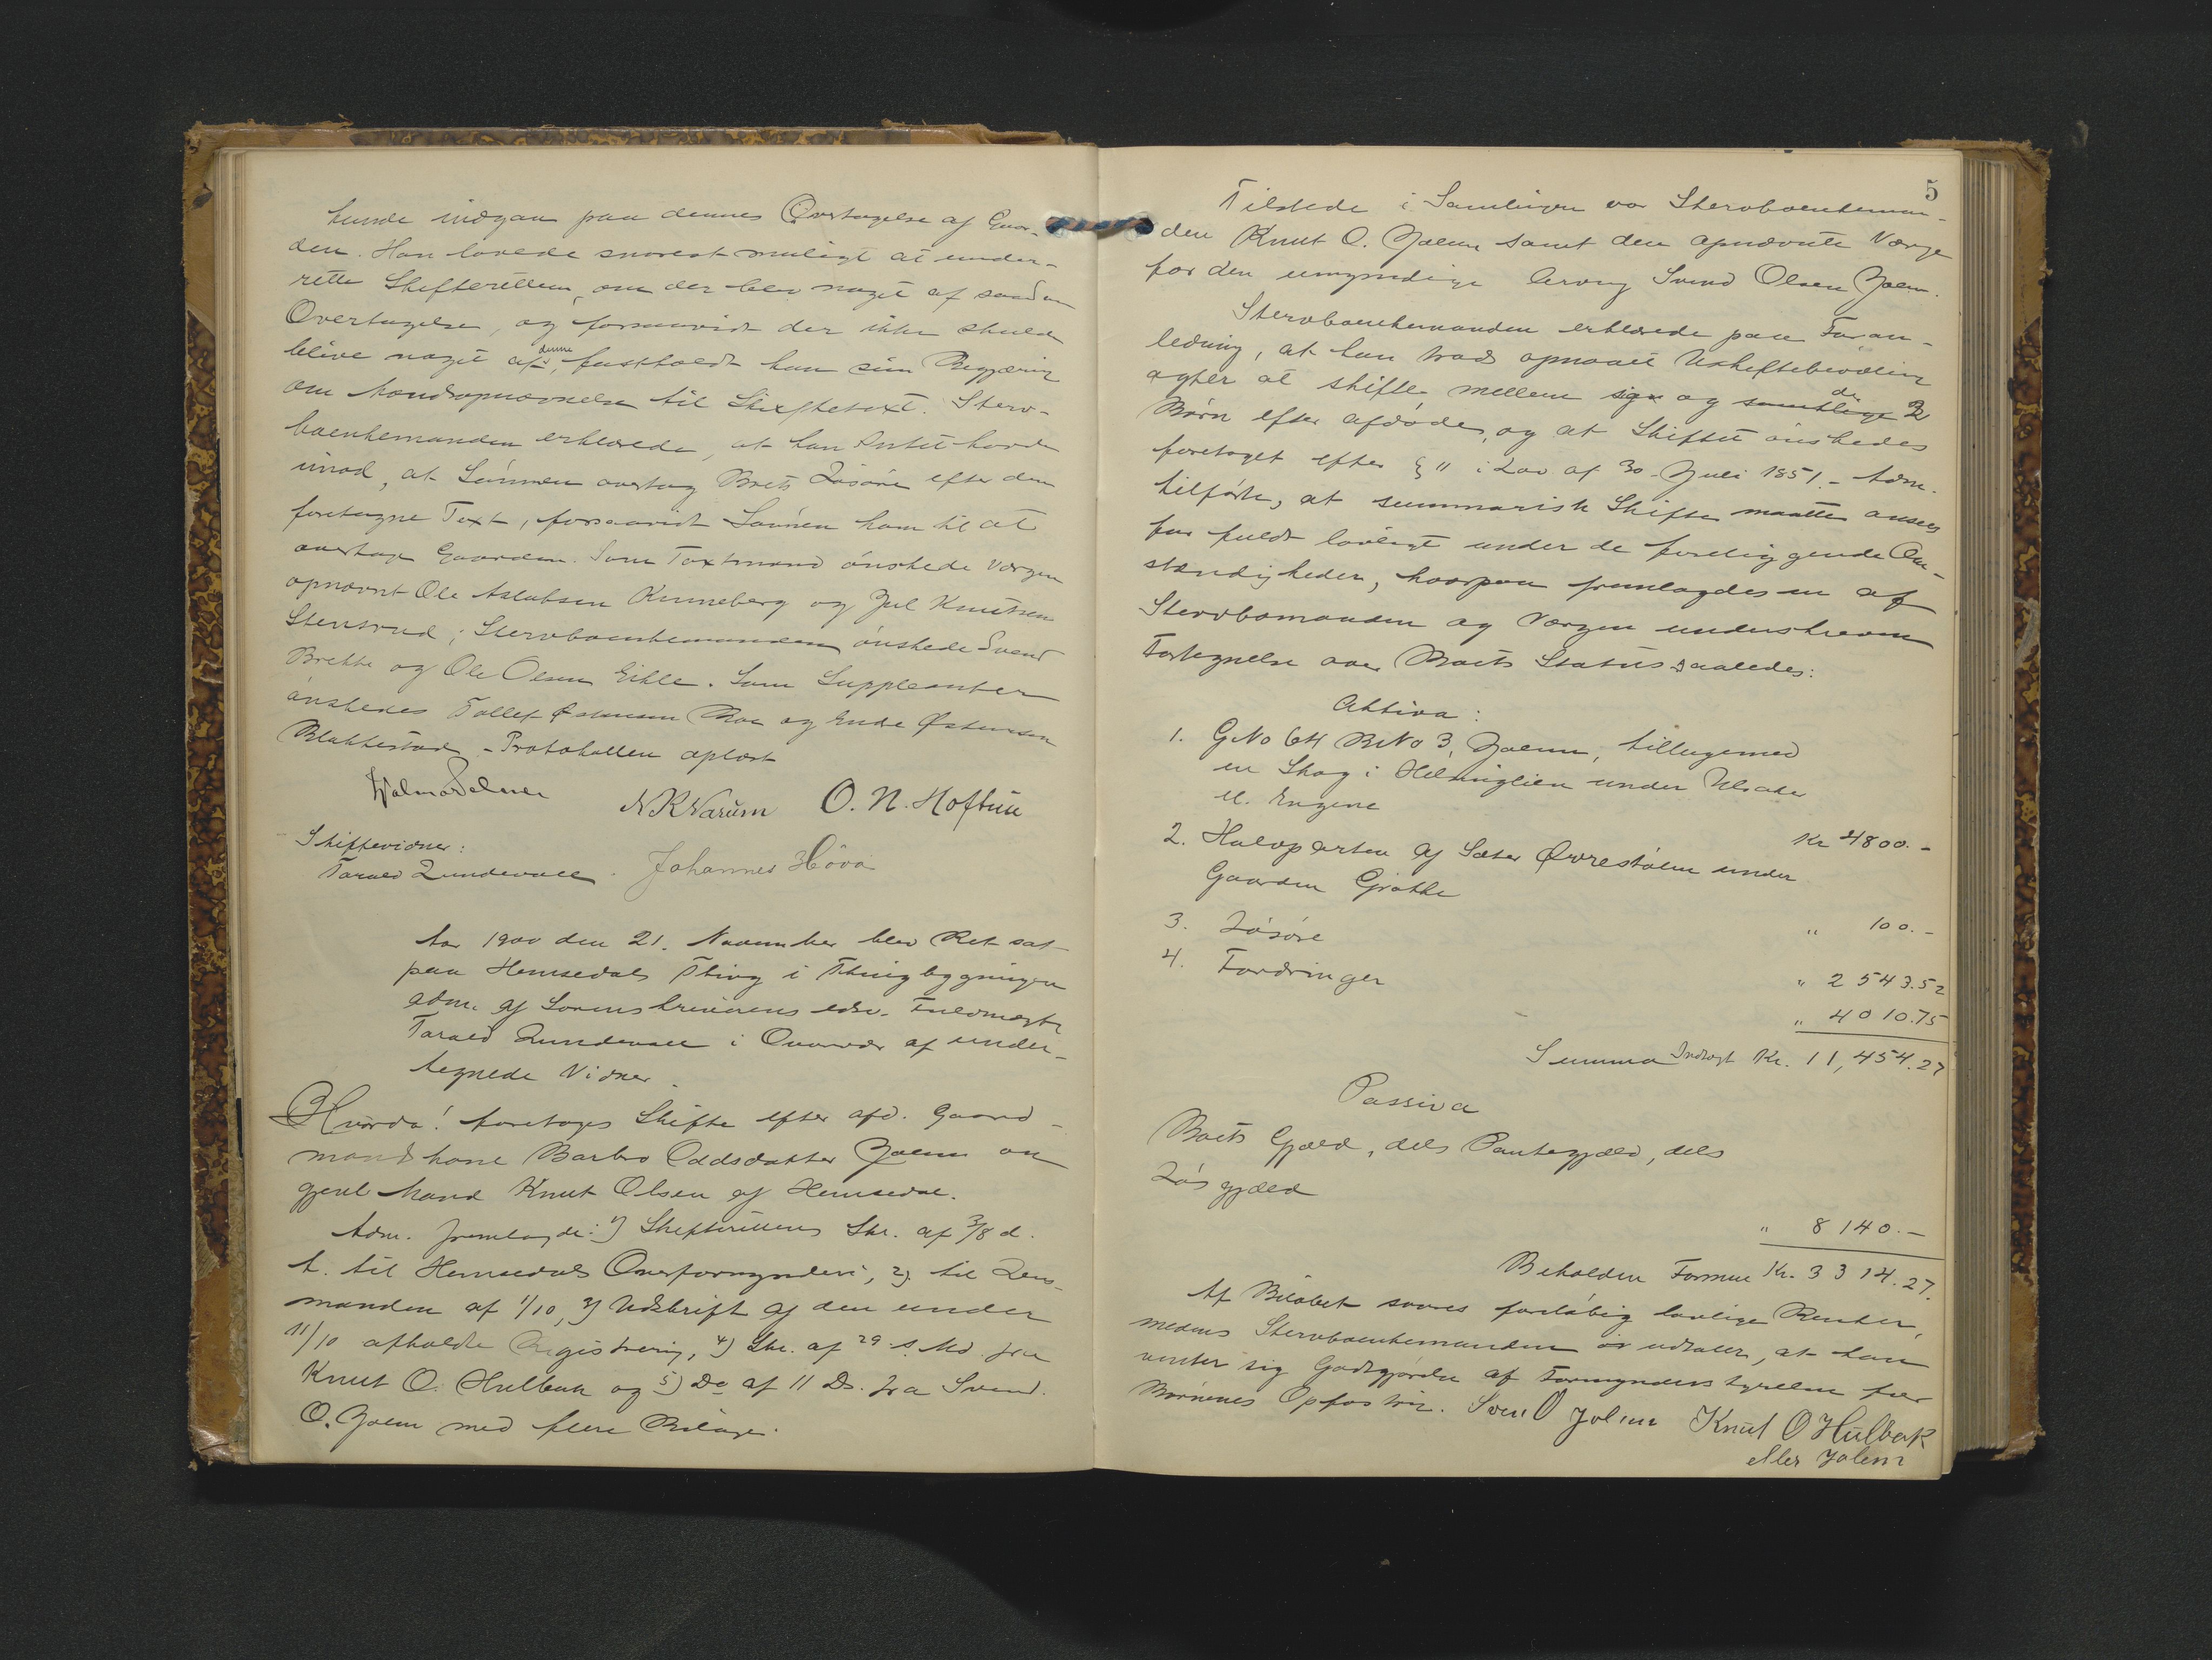 kunde indgaa paa dennes Overtagelse af Gaar-
den. Han lovede snarest muligt at under-
rette Skifteretten, om der blev noget af saadan
Overtagelse, og forsaavidt der ikke skulde
blive noget af denne, fastholdt han sin Begjæring
om Mandsopnævnelse til Skiftetaxt. Sterv-
boenkemanden erklærede, at han Intet havde
imod, at Sönnen overtog Boets Lösöre efter den
foretagne Taxt, forsaavidt Sönnen kom til at
overtage Gaarden. Som Taxtmænd önskede Værgen
opnævnt Ole Aslaksen Kinneberg og Jul Knutsen
Stensrud; Stervboenkemanden önskede Svend
Brekke og Ole Olsen Eikle. Som Suppleanter
önskedes Tollef Østensen Roe og Endre Østensen
Blakkestad. - Protokollen oplæst
N K Narum O. N. Hoftun
Skiftevidner:
Tarald Lundevall. Johannes Höva
Aar 1900 den 21. November blev Ret sat
paa Hemsedals Thing i Thingbygningen
adm. af Sorenskriverens edsv. Fuldmægtig
Tarald Lundevall i Overvær af under-
tegnede Vidner.
Hvorda! foretoges Skifte efter afd. Gaard-
mandskone Barbro Oddsdatter Jolem og
gjenl. Mand Knut Olsen af Hemsedal.
Adm. fremlagde: 1) Skifterettens Skr. af 3/8 d.
A. til Hemsedals Overformynderi, 2) til Lens-
manden af 1/10, 3) Udskrift af den under
11/10 afholdte Registrering, 4) Skr. af 29 s. Md. fra
Knut O. Hulbak og 5) Do af 11 Ds. fra Svend
O. Jolem med flere Bilage.
5
Tilstede i Samlingen var Stervboenkeman-
den Knut O. Jolem samt den opnævnte Værge
for den umyndige Arving Svend Olsen Jolem.
Stervboenkemanden erklærede paa Foran-
ledning, at han trods opnaaet Uskiftebevilling
agter at skifte mellem sig og samtlige de 2
Børn efter afdöde, og at Skiftet önskedes
foretaget efter § 11 i Lov af 30. Juli 1851. - Adm.
tilförte, at summarisk Skifte maatte ansees
for fuldt lovligt under de foreliggende Om-
stændigheder, hvorpaa fremlagdes en af
Stervbomanden og Værgen underskreven
Fortegnelse over Boets Status saaledes:
Aktiva:
1. G.No 64 B.No 3, Jolem, tilligemed
en Skog i Helminglien under Ulsaker
M. Engene
Kr 4800.-
2. Halvparten af Sæter Øvrestölen under
Gaarden Gröthe
" 100.-
3. Lösöre
" 2543.52
4. Fordringer
" 4010.75
Summa Indtægt Kr. 11,454.27
Passiva
Boets Gjæld, dels Pantegjæld, dels
Lösgjæld
" 8140.-
Beholden Formue Kr. 3314.27.
Af Belöbet svares forelöbig lovlige Renter,
medens Stervboenkemanden udtaler, at han
venter sig Godtgjörelse af Formynderstyrelsen for
Börnenes Opfostring. Sven O Jolem Knut O Hulbak
eller Jolem